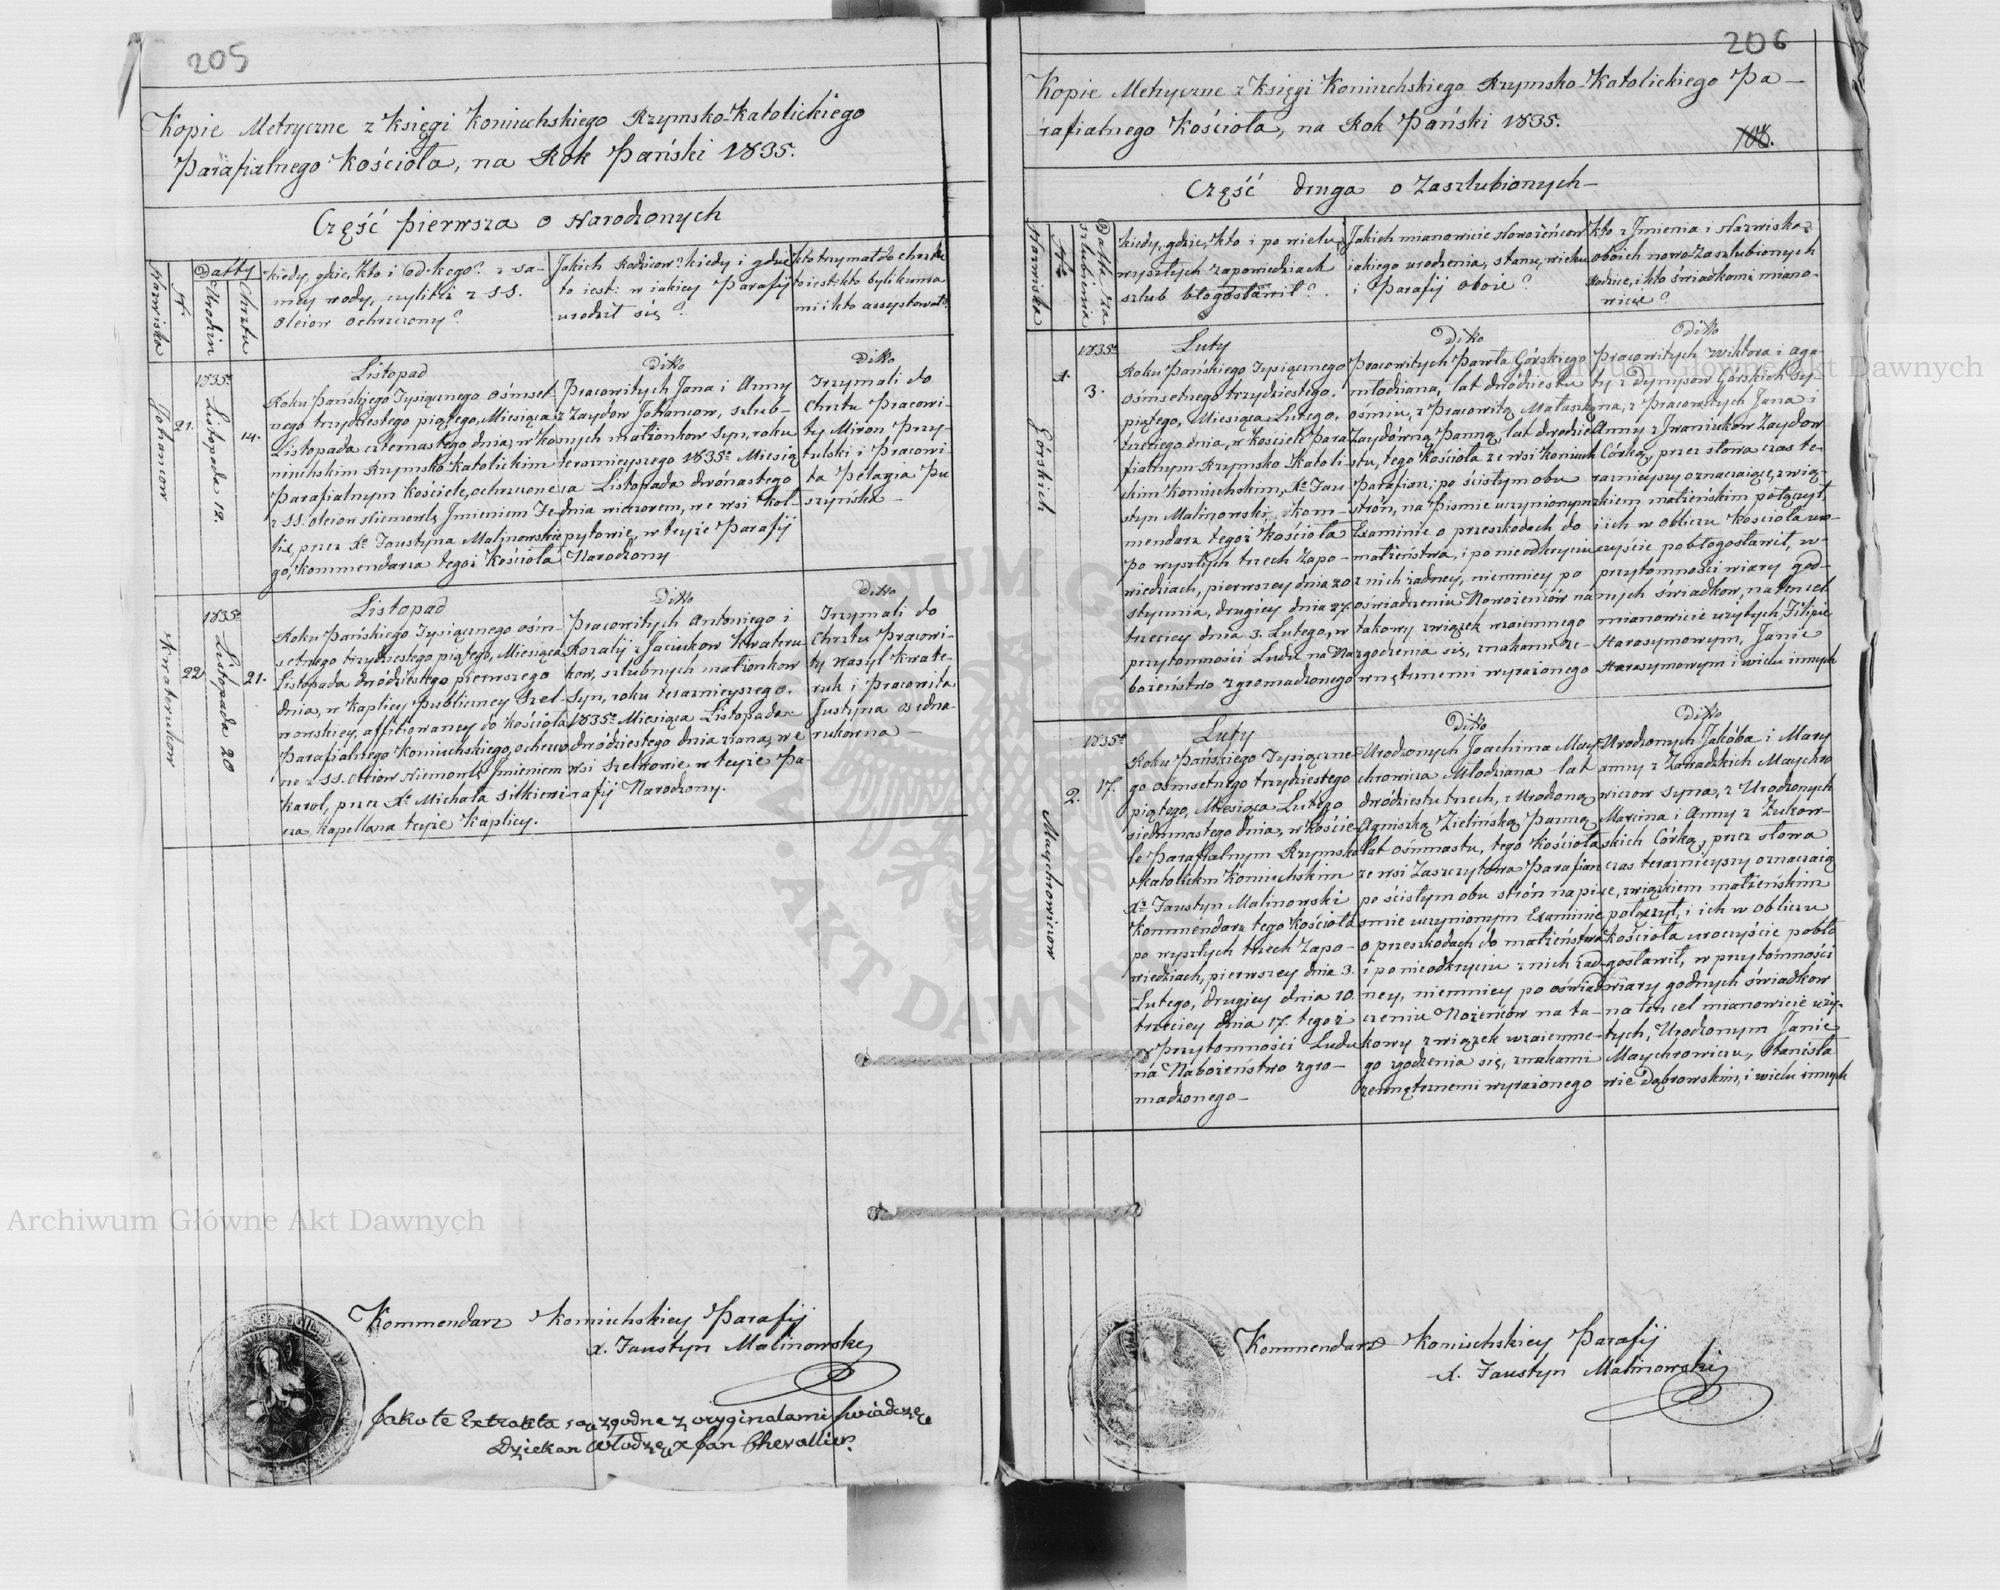 205
Kopie Metryczne z Księgi Koniuchskiego Rzymsko-Katolickiego
Parafialnego Kościoła, na Rok Pański 1835.
Część pierwsza o Narodzonych
Nazwiska
Nr
Datty
Urodzin
Chrztu
kiedy, gdzie, kto i od kogo? z sa-
mey wody, czyliteż z SS.
Oleiow ochrzczony?
Jakich Rodzicow? kiedy i gdzie
to iest: w iakiey Parafij
urodził się?
kto trzymał do chrztu
to iest: kto byli kuma
mi i kto assystował?
Johancow
21.
1835º
Listopada 12.
14.
Listopad
Roku Pańskiego Tysiącznego ośmset
nego trzydziestego piątego, Miesiąca
Listopada czternastego dnia, w Ko
niuchskim Rzymsko-Katolickim
Parafialnym Kościele, ochrzczone
z SS. oleiow Niemowle Jmieniem Fe-
lix, przez Xº Faustyna Malinowskie
go, Kommendarza tegoż Kościoła
Ditto
Pracowitych Jana i Anny
z Zaydow Johancow, szlub-
nych małżonkow Syn, roku
teraznieyszego 1835º Miesią
ca Listopada dwónastego
dnia wieczorem, we wsi Koł-
pytowie, w teyże Parafij
Narodzony
Ditto
Trzymali do
Chrztu Pracowi-
ty Miron Przy-
tulski i Pracowi-
ta Pelagia Pu
szyńska –
Kwaterukow
22
1835º
Listopada 20
21.
Listopad
Roku Pańskiego Tysiącznego ośm-
setnego trzydziestego piątego, Miesiąca
Listopada dwódziestego pierwszego
dnia, w Kaplicy Publiczney Szel-
wowskiey, affiliowaney do Kościoła
Parafialnego Koniuchskiego, ochrzczo
ne z SS. Oleiow Niemowle Jmieniem
Karol, przez Xº Michała Silkiewi
cza, Kapellana teyże Kaplicy.
Ditto
Pracowitych Antoniego i
Rozalij z Jaciukow Kwateru
kow, szlubnych małżonkow
Syn, roku teraznieyszego.
1835º Miesiąca Listopada
dwódziestego dnia zrana, we
wsi Szelwowie w teyże Pa-
rafij Narodzony.
Ditto
Trzymali do
Chrztu Pracowi-
ty Wasyl Kwate-
ruk i Pracowita
Justyna
rukowna –
Kommendarz Koniuchskiey Parafij
X. Faustyn Malinowski
Jako te Extrakta są zgodne z oryginalami swiadczę
Dziekan Włodz: x Jan Chevallier.
206
Kopie Metryczne z Księgi Koniuchskiego Rzymsko-Katolickiego Pa-
rafialnego Kościoła, na Rok Pański 1835.
Część druga o Zaszlubionych –
Nazwiska
Nr
Datta Za-
szlubienia
kiedy, gdzie, kto i po wielu
wyszłych zapowiedziach
szlub błogosławił?
Jakich mianowicie Nowożeńcow
iakiego urodzenia, stanu, wieku
i Parafij oboie?
Kto z Jmienia i Nazwiska
oboich nowo Zaszlubionych
Rodzice, i kto świadkami miano-
wicie?
Górskich
1.
1835º
3.
Luty
Roku Pańskiego Tysiącznego
ośmsetnego trzydziestego
piątego, Miesiąca Lutego,
trzeciego dnia, w Kościele Para
fialnym Rzymsko Katoli-
ckim Koniuchskim, Xº Fau-
styn Malinowski, Kom-
mendarz tegoż Kościoła
po wyszłych trzech Zapo-
wiedziach, pierwszey dnia 20
stycznia, drugiey dnia 27.
trzeciey dnia 3. Lutego, w
przytomności Ludu na Na
bożeństwo zgromadzonego
Ditto
Pracowitych Pawła Górskiego
młodziana, lat dwódziestu
ośmiu, z Pracowitą Mataszką
Zaydówną Panną, lat dwódzie
stu, tego Kościoła ze wsi Koniuch
Parafian; po ścisłym obu
strón, na Piśmie uczynionym
Examinie o przeszkodach do
małżeństwa, i po nieodkryciu
z nich żadney, niemniey po
oświadczeniu Nowożeńców na
takowy związek wzaiemnego
zgodzenia się, znakami ze-
wnętrznemi wyrażonego
Ditto
Pracowitych Wiktora i Aga-
ty z Dymysow Górskich Sy-
na, z Pracowitych Jana i
Anny z Jwaniukow Zaydow
Córkę, przez słowa czas te-
raznieyszy oznaczaiące, zwią-
zkiem małżeńskim połączył,
i ich w obliczu Kościoła uro-
czyście pobłogosławił, w
przytomności wiary god-
nych świadkow, na ten cel
mianowicie użytych, Filipie
Harasymowym, Janie
Harasymowym i wielu innych
Maychrowiczow
2.
1835º
17.
Luty
Roku Pańskiego Tysiączne-
go ośmsetnego trzydziestego
piątego, Miesiąca Lutego
siedmnastego dnia, w Koście-
le Parafialnym Rzymsko
Katolickim Koniuchskim
Xº Faustyn Malinowski
Kommendarz tego Kościoła
po wyszłych trzech Zapo-
wiedziach, pierwszey dnia 3.
Lutego, drugiey dnia 10.
trzeciey dnia 17. tegoż
w Przytomności Ludu
na Nabożeństwo zgro-
madzonego –
Ditto
Urodzonych Joachima May
chrowicza Młodziana lat
dwódziestu trzech, z Urodzoną
Agniszką Zielińską Panną
lat ośmnastu, tego Kościoła
ze wsi Zaszczytowa Parafian
po ścisłym obu strón na pi-
smie uczynionym Examinie
o przeszkodach do małżeństwa
i po nieodkryciu z nich żad-
ney, niemniey po oświad-
czeniu Nożeńców na ta-
kowy związek wzaiemne-
go zgodzenia się, znakami
zewnętrznemi wyrażonego
Ditto
Urodzonych Jakóba i Mary
anny z Zawadzkich Maychro
wiczow Syna, z Urodzonych
Marcina i Anny z Zukow-
skich Córkę, przez słowa
czas teraznieyszy oznaczaią
ce, związkiem małżeńskim
połączył, i ich w obliczu
Kościoła uroczyście pobło
gosławił, w przytomności
wiary godnych świadkow
na ten cel mianowicie uży-
tych, Urodzonym Janie
Maychrowiczu, Stanisła
wie Dąbrowskim, i wielu innych
Kommendarz Koniuchskiey Parafij
X. Faustyn Malinowski
Archiwum Główne Akt Dawnych
Archiwum Główne Akt Dawnych